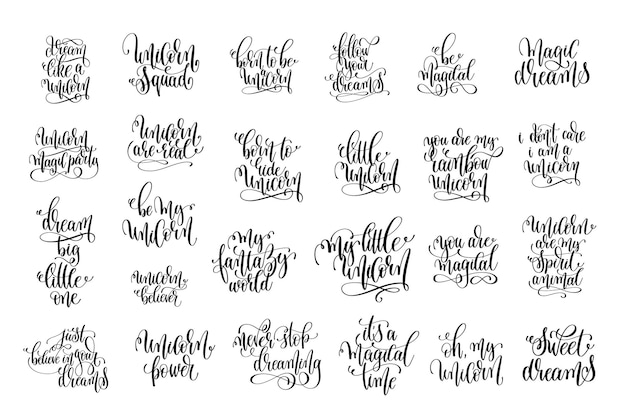 dream
like a
Unicorn
Unicorn
Squad
born to be
a
Unicorn
follow
your
dreams
be
magical
Magic
dreams
Unicorn
magic party
Unicorn
are real
born to
ride
Unicorn
little
Unicorn
you are my
rainbow
unicorn
i don't care
i am a
unicorn
dream
big
little
one
be my
Unicorn
Unicorn
believer
my
fantazy
world
my little
unicorn
you are
magical
Unicorn
are my
Spirit
animal
just
believe in your
dreams
Unicorn
power
never stop
dreaming
it's a
magical
time
oh, my
Unicorn
Sweet
dreams